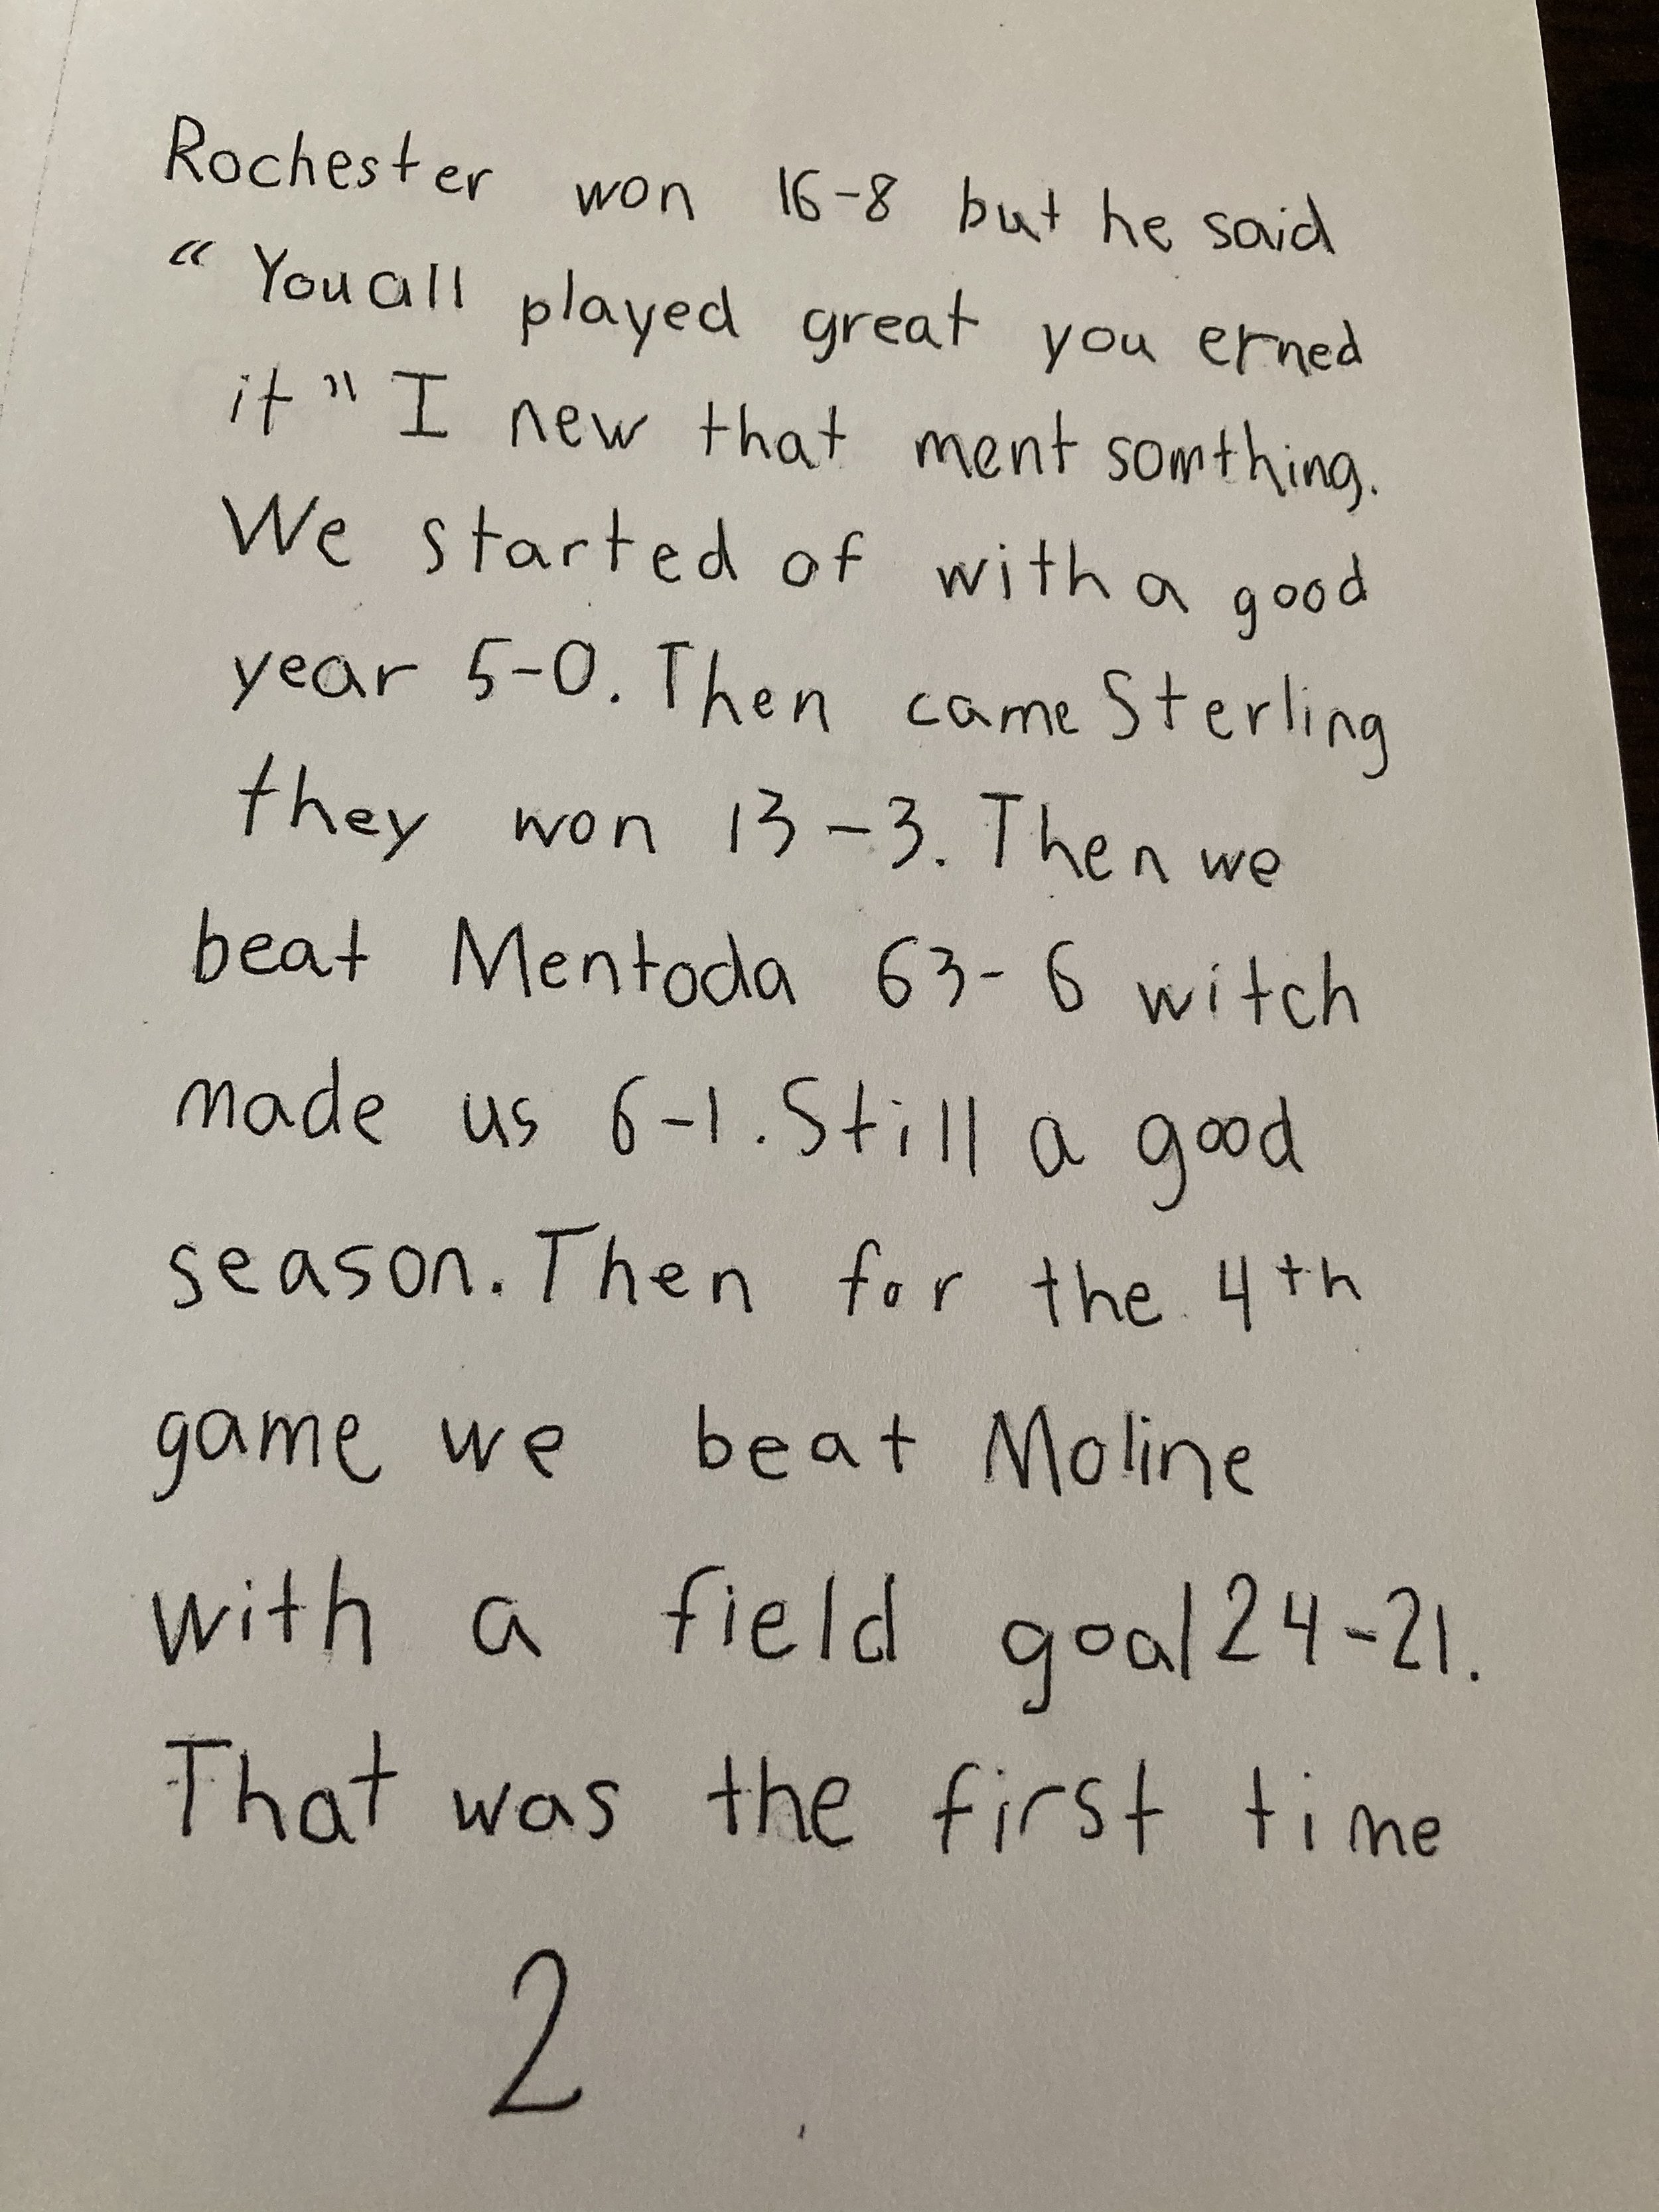 Rochester won 16-8 but he said
“You all played great you erned
it” I new that ment somthing.
We started of with a good
year 5-0. Then came Sterling
they won 13-3. Then we
beat Mentoda 63-6 witch
made us 6-1. Still a good
season. Then for the 4th
game we beat Moline
with a field goal 24-21.
That was the first time
2